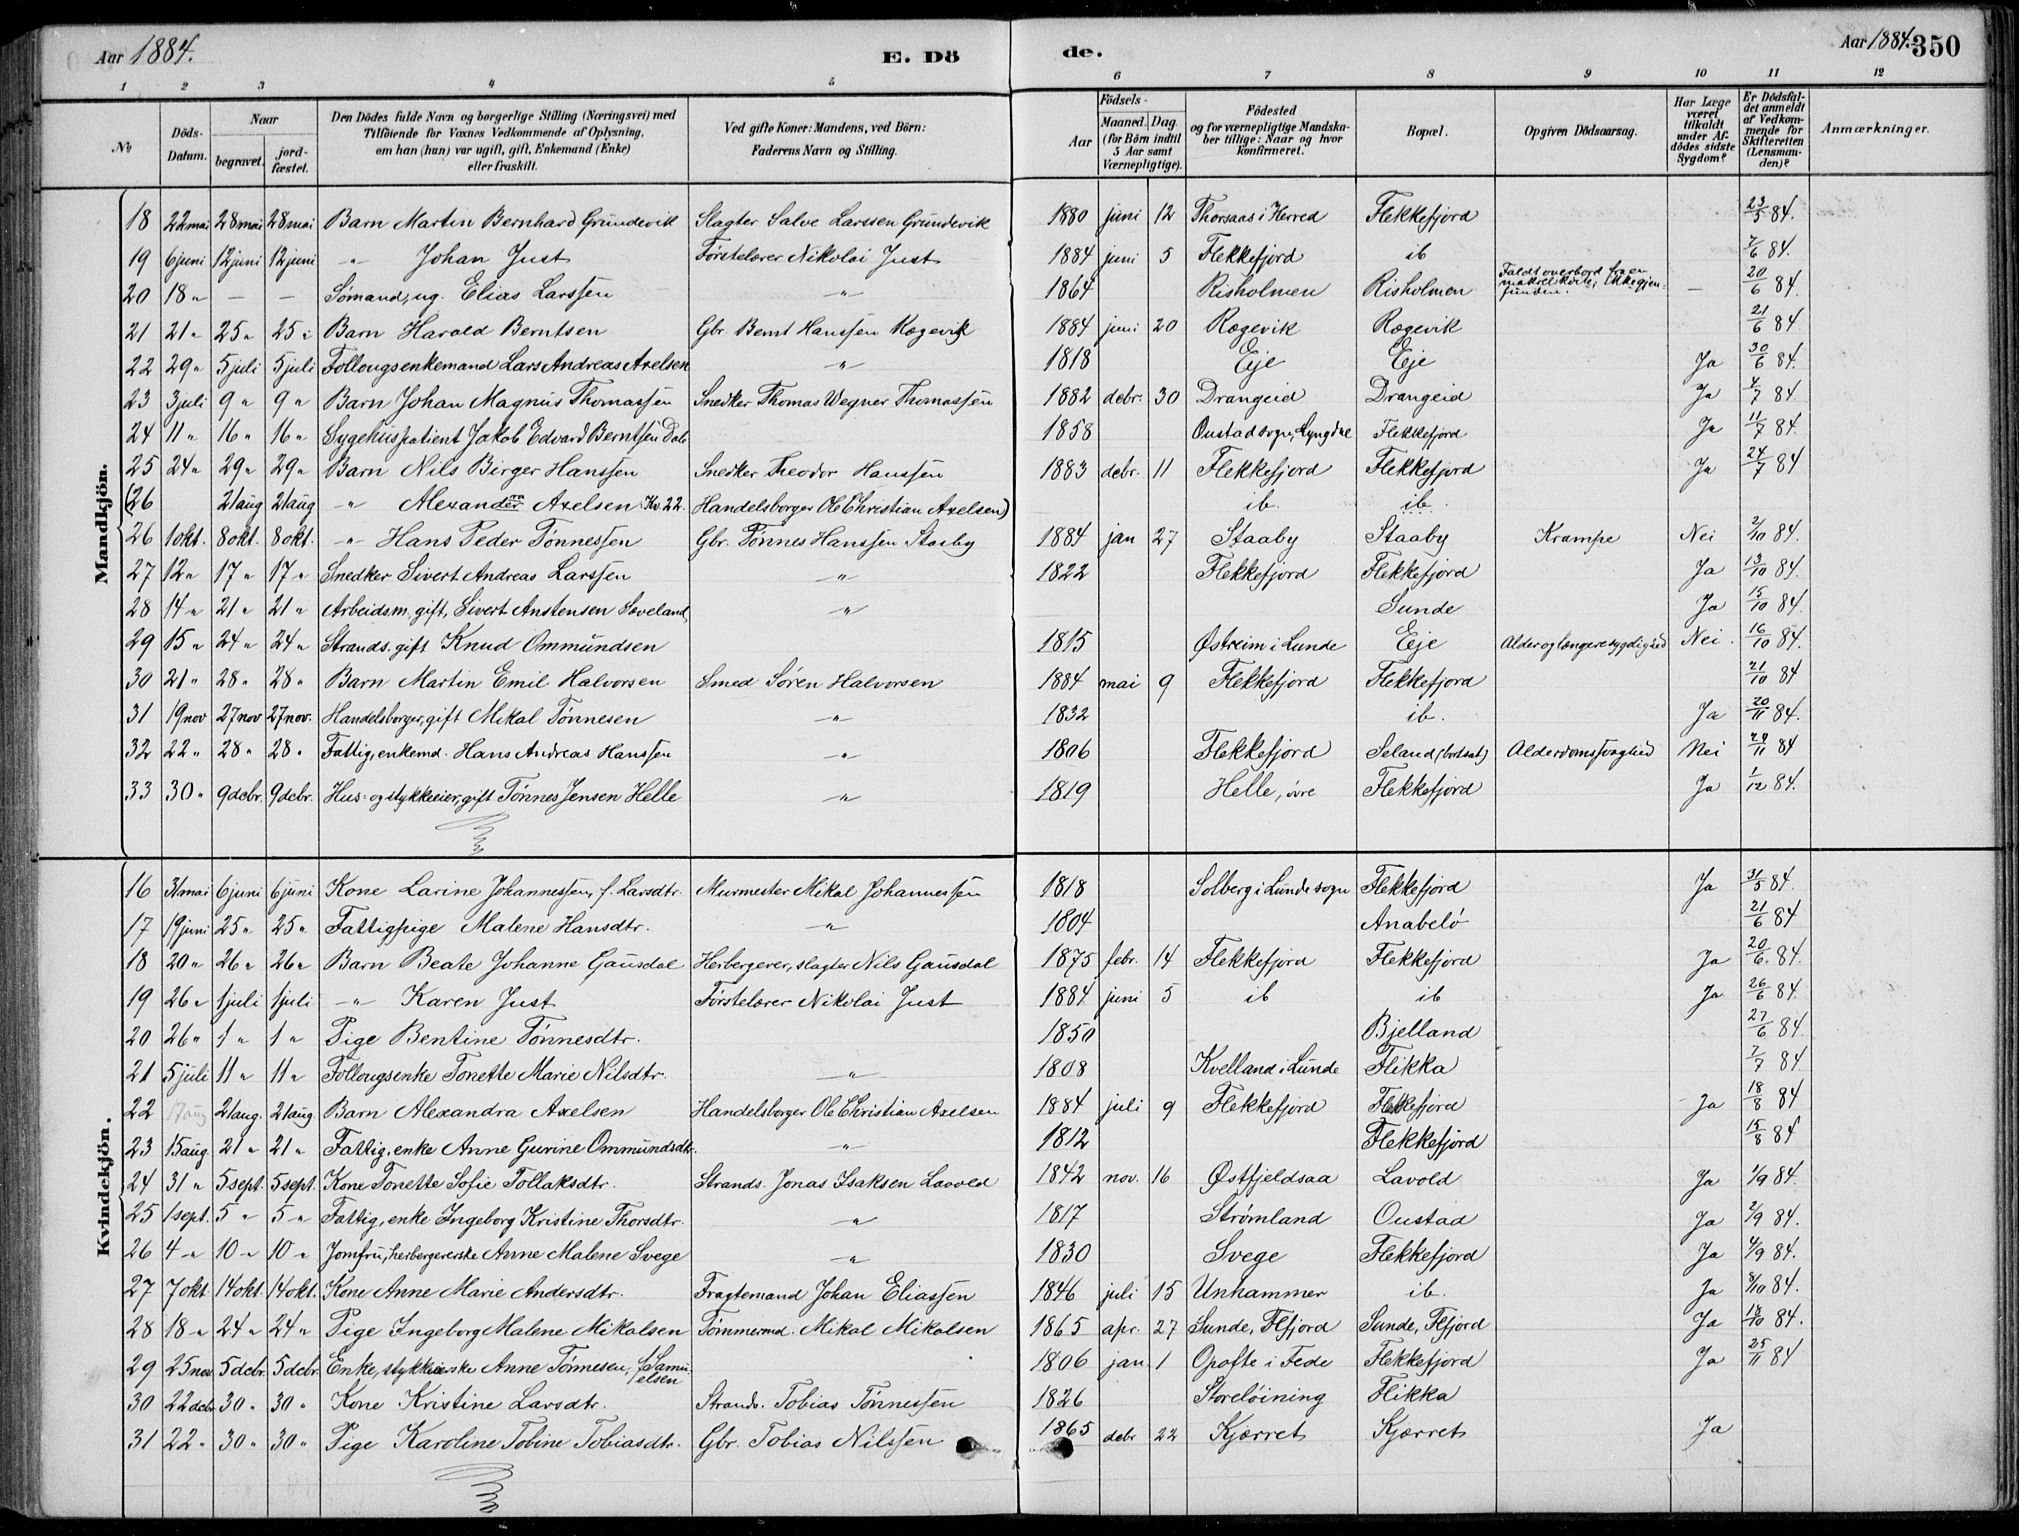 Aar 1884. E. Dö de. Aar 1884. 350
1 2 3 4 5 6 7 8 9 10 11 12
№ Döds-Datum. Naar begravet. jord-fæstet. Den Dödes fulde Navn og borgerlige Stilling (Næringsvei) med Tilföiende for Voxnes Vedkommende af Oplysning, om han (hun) var ugift, gift, Enkemand (Enke) eller fraskilt. Ved gifte Koner: Mandens, ved Börn: Faderens Navn og Stilling. Födsels- Aar Maaned. Dag (for Börn indtil 5 Aar samt Værnepligtige). Födested og for værnepligtige Mandskaber tillige: Naar og hvor konfirmeret. Bopæl. Opgiven Dödsaarsag. Har Læge været tilkaldt under Afdödes sidste Sygdom? Er Dödsfaldet anmeldt af Vedkommende for Skifteretten (Lensmanden)? Anmærkninger.
Mandkjön.
18 22mai 28mai 28mai Barn Martin Bernhard Grundevik Slagter Salve Larssen Grundevik 1880 juni 12 Thorsaas i Herred Flekkefjord 23/5 84.
19 6juni 12juni 12juni " Johan Just Førstelærer Nikolai Just 1884 juni 5 Flekkefjord ib 7/6 84.
20 18 " — — Sømand, ug. Elias Larssen " 1864 Risholmen Risholmen Faldt overbord fra en makrelskøite; ikke gjenfunden. — 20/6 84.
21 21 " 25 " 25 " Barn Harald Berntsen Gbr. Bernt Hanssen Rogevik 1884 juni 20 Rogevik Rogevik 21/6 84
22 29 " 5juli 5juli Follougsenkemand Lars Andreas Axelsen " 1818 Eje Eje Ja 30/6 84.
23 3juli 9 " 9 " Barn Johan Magnus Thomassen Snedker Thomas Wegner Thomassen 1882 debr. 30 Drangeid Drangeid Ja 4/7 84
24 11 " 16 " 16 " Sygehuspatient Jakob Edvard Berntsen 1858 Oustad sogn, Lyngdal Flekkefjord Ja 11/7 84.
25 24 " 29 " 29 " Barn Nils Birger Hanssen Snedker Theodor Hanssen 1883 debr. 11 Flekkefjord Flekkefjord Ja 24/7 84
(26 21aug 21aug " Alexandra Axelsen Kv. 22. Handelsborger Ole Christian Axelsen) ib. ib.
26 1okt. 8okt. 8okt. " Hans Peder Tønnessen Gbr. Tønnes Hanssen Staaby 1884 jan 27 Staaby Staaby Krampe Nei 2/10 84.
27 12 " 17 " 17 " Snedker Sivert Andreas Larssen " 1822 Flekkefjord Flekkefjord Ja 13/10 84.
28 14 " 21 " 21 " Arbeidsm. gift, Sivert Anstensen Soveland " Sunde Ja 15/10 84.
29 15 " 24 " 24 " Strands. gift Knud Ommundsen 1815 Østreim i Lunde Eje Alder og længere sygelighed Nei. 16/10 84.
30 21 " 28 " 28 " Barn Martin Emil Halvorsen Smed Søren Halvorsen 1884 mai 9 Flekkefjord Flekkefjord 21/10 84
31 19nov 27nov 27nov. Handelsborger, gift Mikal Tønnesen " 1832 ib. Ja 20/11 84.
32 22 " 28 " 28 " Fattig, enkemd. Hans Andreas Hanssen " 1806 Flekkefjord Seland (bortsat) Alderdomssvaghed Nei 24/11 84
33 30 " 9debr. 9debr. Hus- og stykkeeier, gift Tønnes Jensen Helle " 1819 Helle, øvre Flekkefjord Ja 1/12 84.
Kvindekjön.
16 31mai 6juni 6juni Kone Larine Johannessen, f. Larsdtr. Murmester Mikal Johannessen 1818 Solberg i Lunde sogn Flekkefjord Ja 31/5 84.
17 19juni 25 " 25 " Fattigpige Malene Hansdtr. " 1804 Anabelø 21/6 84
18 20 " 26 " 26 " Barn Beate Johanne Gausdal Herbergerer, slagter Nils Gausdal 1875 febr. 14 Flekkefjord Flekkefjord Ja 20/6. 84.
19 26 " 1juli 1juli " Karen Just Førstelærer Nikolai Just 1884 juni 5 ib ib Ja 26/6 84.
20 26 " 1 " 1 " Pige Bentine Tønnesdtr. 1850 Bjelland 27/6 84.
21 5juli 11 " 11 " Follougsenke Tonette Marie Nilsdtr. " 1808 Kvelland i Lunde Flikka 7/7 84
22 17aug 21aug. 21aug Barn Alexandra Axelsen Handelsborger Ole Christian Axelsen 1884 juli 9 Flekkefjord Flekkefjord Ja 18/8 84
23 15aug. 21 " 21 " Fattig, enke Anne Gurine Ommundsdtr. " 1812 Flekkefjord 15/8 84
24 31 " 5sept. 5sept. Kone Tonette Sofie Tollaksdtr. Strands. Jonas Isaksen Lavold 1842 nov. 16 Østfjeldsaa Lavold Ja 1/9 84.
25 1sept. 5 " 5 " Fattig, enke Ingeborg Kristine Thorsdtr. " 1817 Strømland Oustad Ja 2/9 84.
26 4 " 10 " 10 " Jomfru, herbergererske Anne Malene Svege " 1830 Svege Flekkefjord Ja 4/9 84.
27 7okt 14okt. 14okt. Kone Anne Marie Andersdtr. Fragtemand Johan Eliassen 1846 juli 15 Unhammer ib. Ja 8/10 84.
28 18 " 24 " 24 " Pige Ingeborg Malene Mikalsen Tømmermd. Mikal Mikalsen 1865 apr. 27 Sunde, Flfjord Sunde, Flfjord Ja 18/10 84.
29 25nov 5debr. 5debr. Enke, stykkeierske Anne Tønnesen, f. Samuelsen 1806 jan. 1 Opofte i Fede Flekkefjord Ja 25/11 84
30 22debr 30 " 30 " Kone Kristine Larsdtr. Strands. Tobias Tønnessen 1826 Storeløining Flikka
31 22 " 30 " 30 " Pige Karoline Tobine Tobiasdtr. Gbr. Tobias Nilssen 1865 debr 22 Kjørret Kjørret Ja